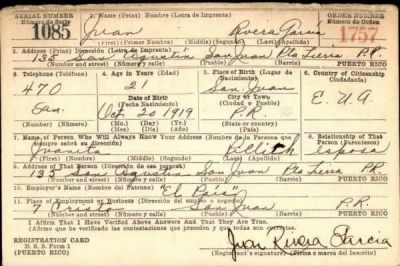 SERIAL NUMBER 1. Name (Print) Nombre (Letra de Imprenta) ORDER NUMBER
Número de Serie Número de Orden
1085 Juan Rivera García 1757
(First) (Primer Nombre) (Middle) (Segundo) (Last) (Apellido)
2. Address (Print) Dirección (Letra de Imprenta)
135 San Agustin San Juan Pta Tierra P.R.
Number and street) (Número y calle) (Town) (Pueblo) (Barrio) PUERTO RICO
3. Telephone (Teléfono) 4. Age in Years (Edad) 5. Place of Birth (Lugar de Nacimiento) 6. Country of Citizenship (Ciudadanía)
470 21 San Juan E. U. A.
Date of Birth (Fecha Nacimiento) City or Town (Ciudad o Pueblo)
San. Oct. 20 1919 P.R.
(Mo.) (Day) (Yr.)
(Mes) (Día) (Año)
7. Name of Person Who Will Always Know Your Address (Nombre de la Persona que siempre sabrá su dirección) 8. Relationship of That Person (Parentesco)
Juanita Esposa
(First) (Primer Nombre) (Middle) (Segundo) (Last) (Apellido)
9. Address of That Person (Dirección de esa persona)
135 San Agustin San Juan Pta Tierra P.R.
(Number and street) (Número y calle) (Town) (Pueblo) (Barrio) PUERTO RICO
10. Employer's Name (Nombre del Patrono) "El País"
11. Place of Employment or Business (Dirección del empleo o negocio)
7 Cristo San Juan P.R.
(Number and street) (Número y calle) (Town) (Pueblo) (Barrio) PUERTO RICO
I Affirm That I Have Verified Above Answers And That They Are True.
Afirmo que he verificado las contestaciones que preceden y que todas son ciertas.
REGISTRATION CARD
D. S. S. Form 1
(Puerto Rico)
Juan Rivera García
(Registrant's Signature) (Firma o marca del Inscrito)